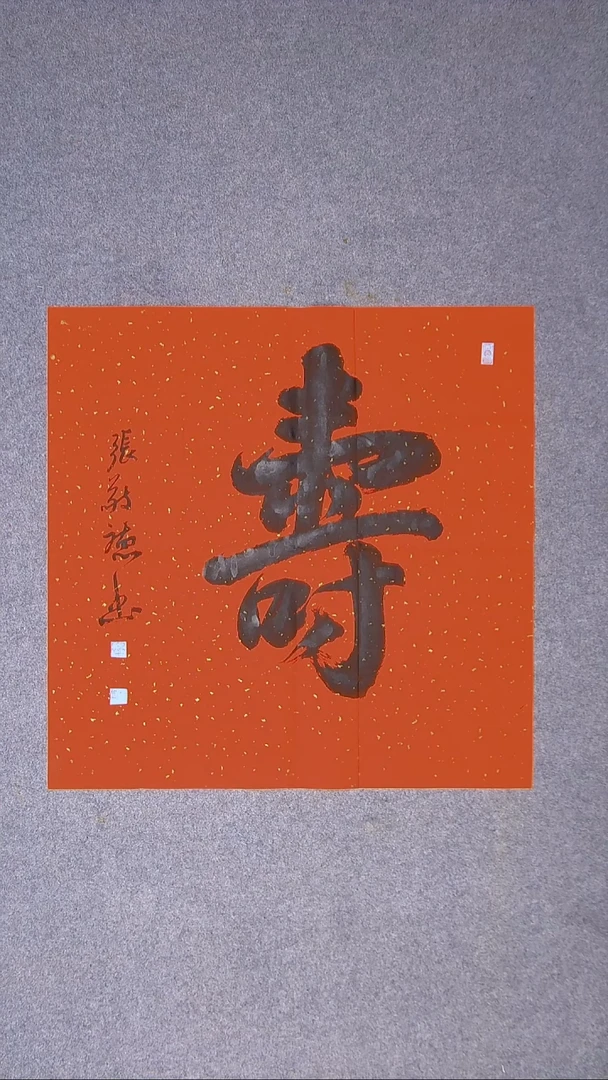 壽
張敬德書